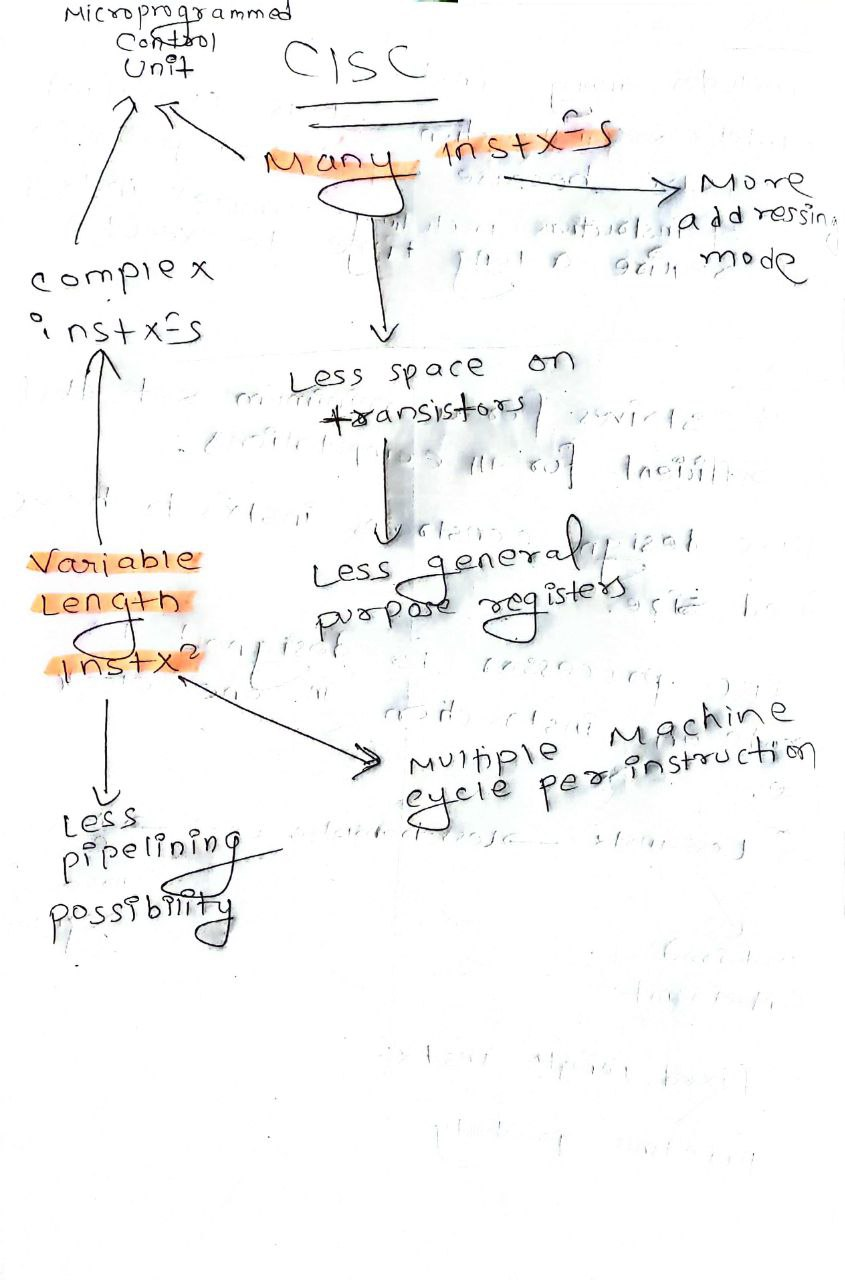 Microprogrammed
Control
Unit
CISC
Many instxⁿs
More
addressing
mode
complex
instxⁿs
Less space on
transistors
Less general
purpose registers
Variable
Length
instxⁿ
Multiple Machine
cycle per instruction
Less
pipelining
possibility